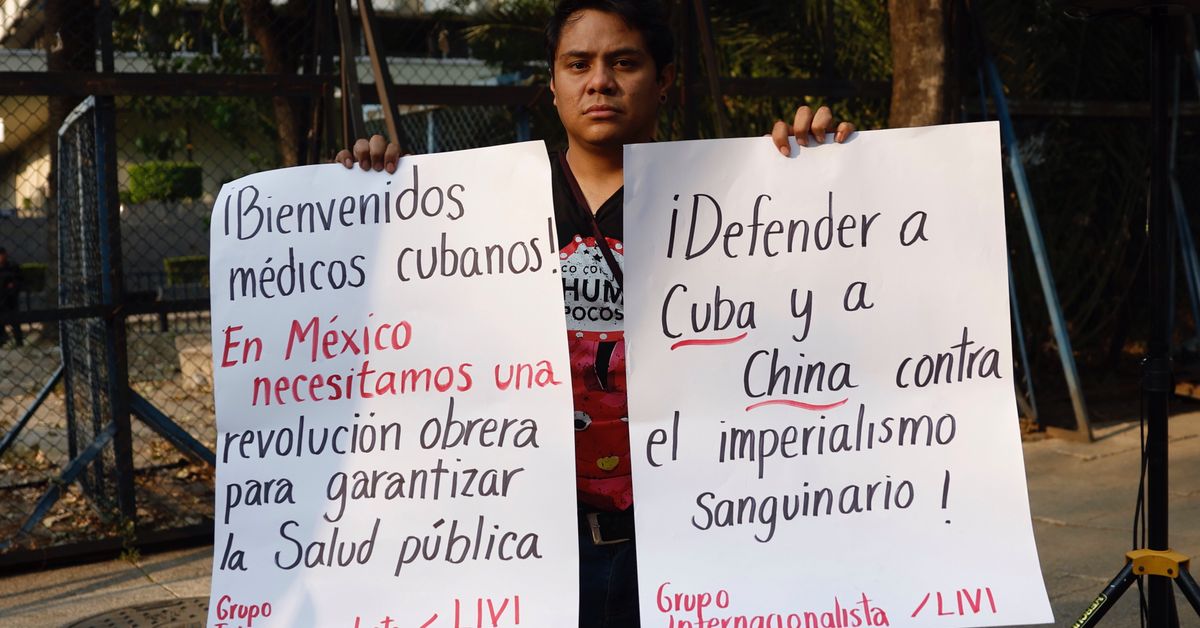 ¡Bienvenidos
médicos cubanos!
En México
necesitamos una
revolución obrera
para garantizar
la Salud pública
Grupo
/ LIVI
¡Defender a
Cuba y a
China contra
el imperialismo
sanguinario!
Grupo
Internacionalista / LIVI
HUM
POCOS